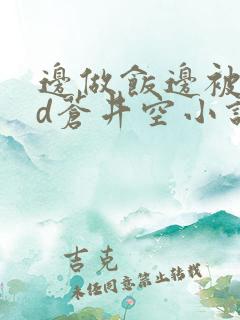 邊做飯邊被
d蒼井空小說
吉克
未经同意禁止转载